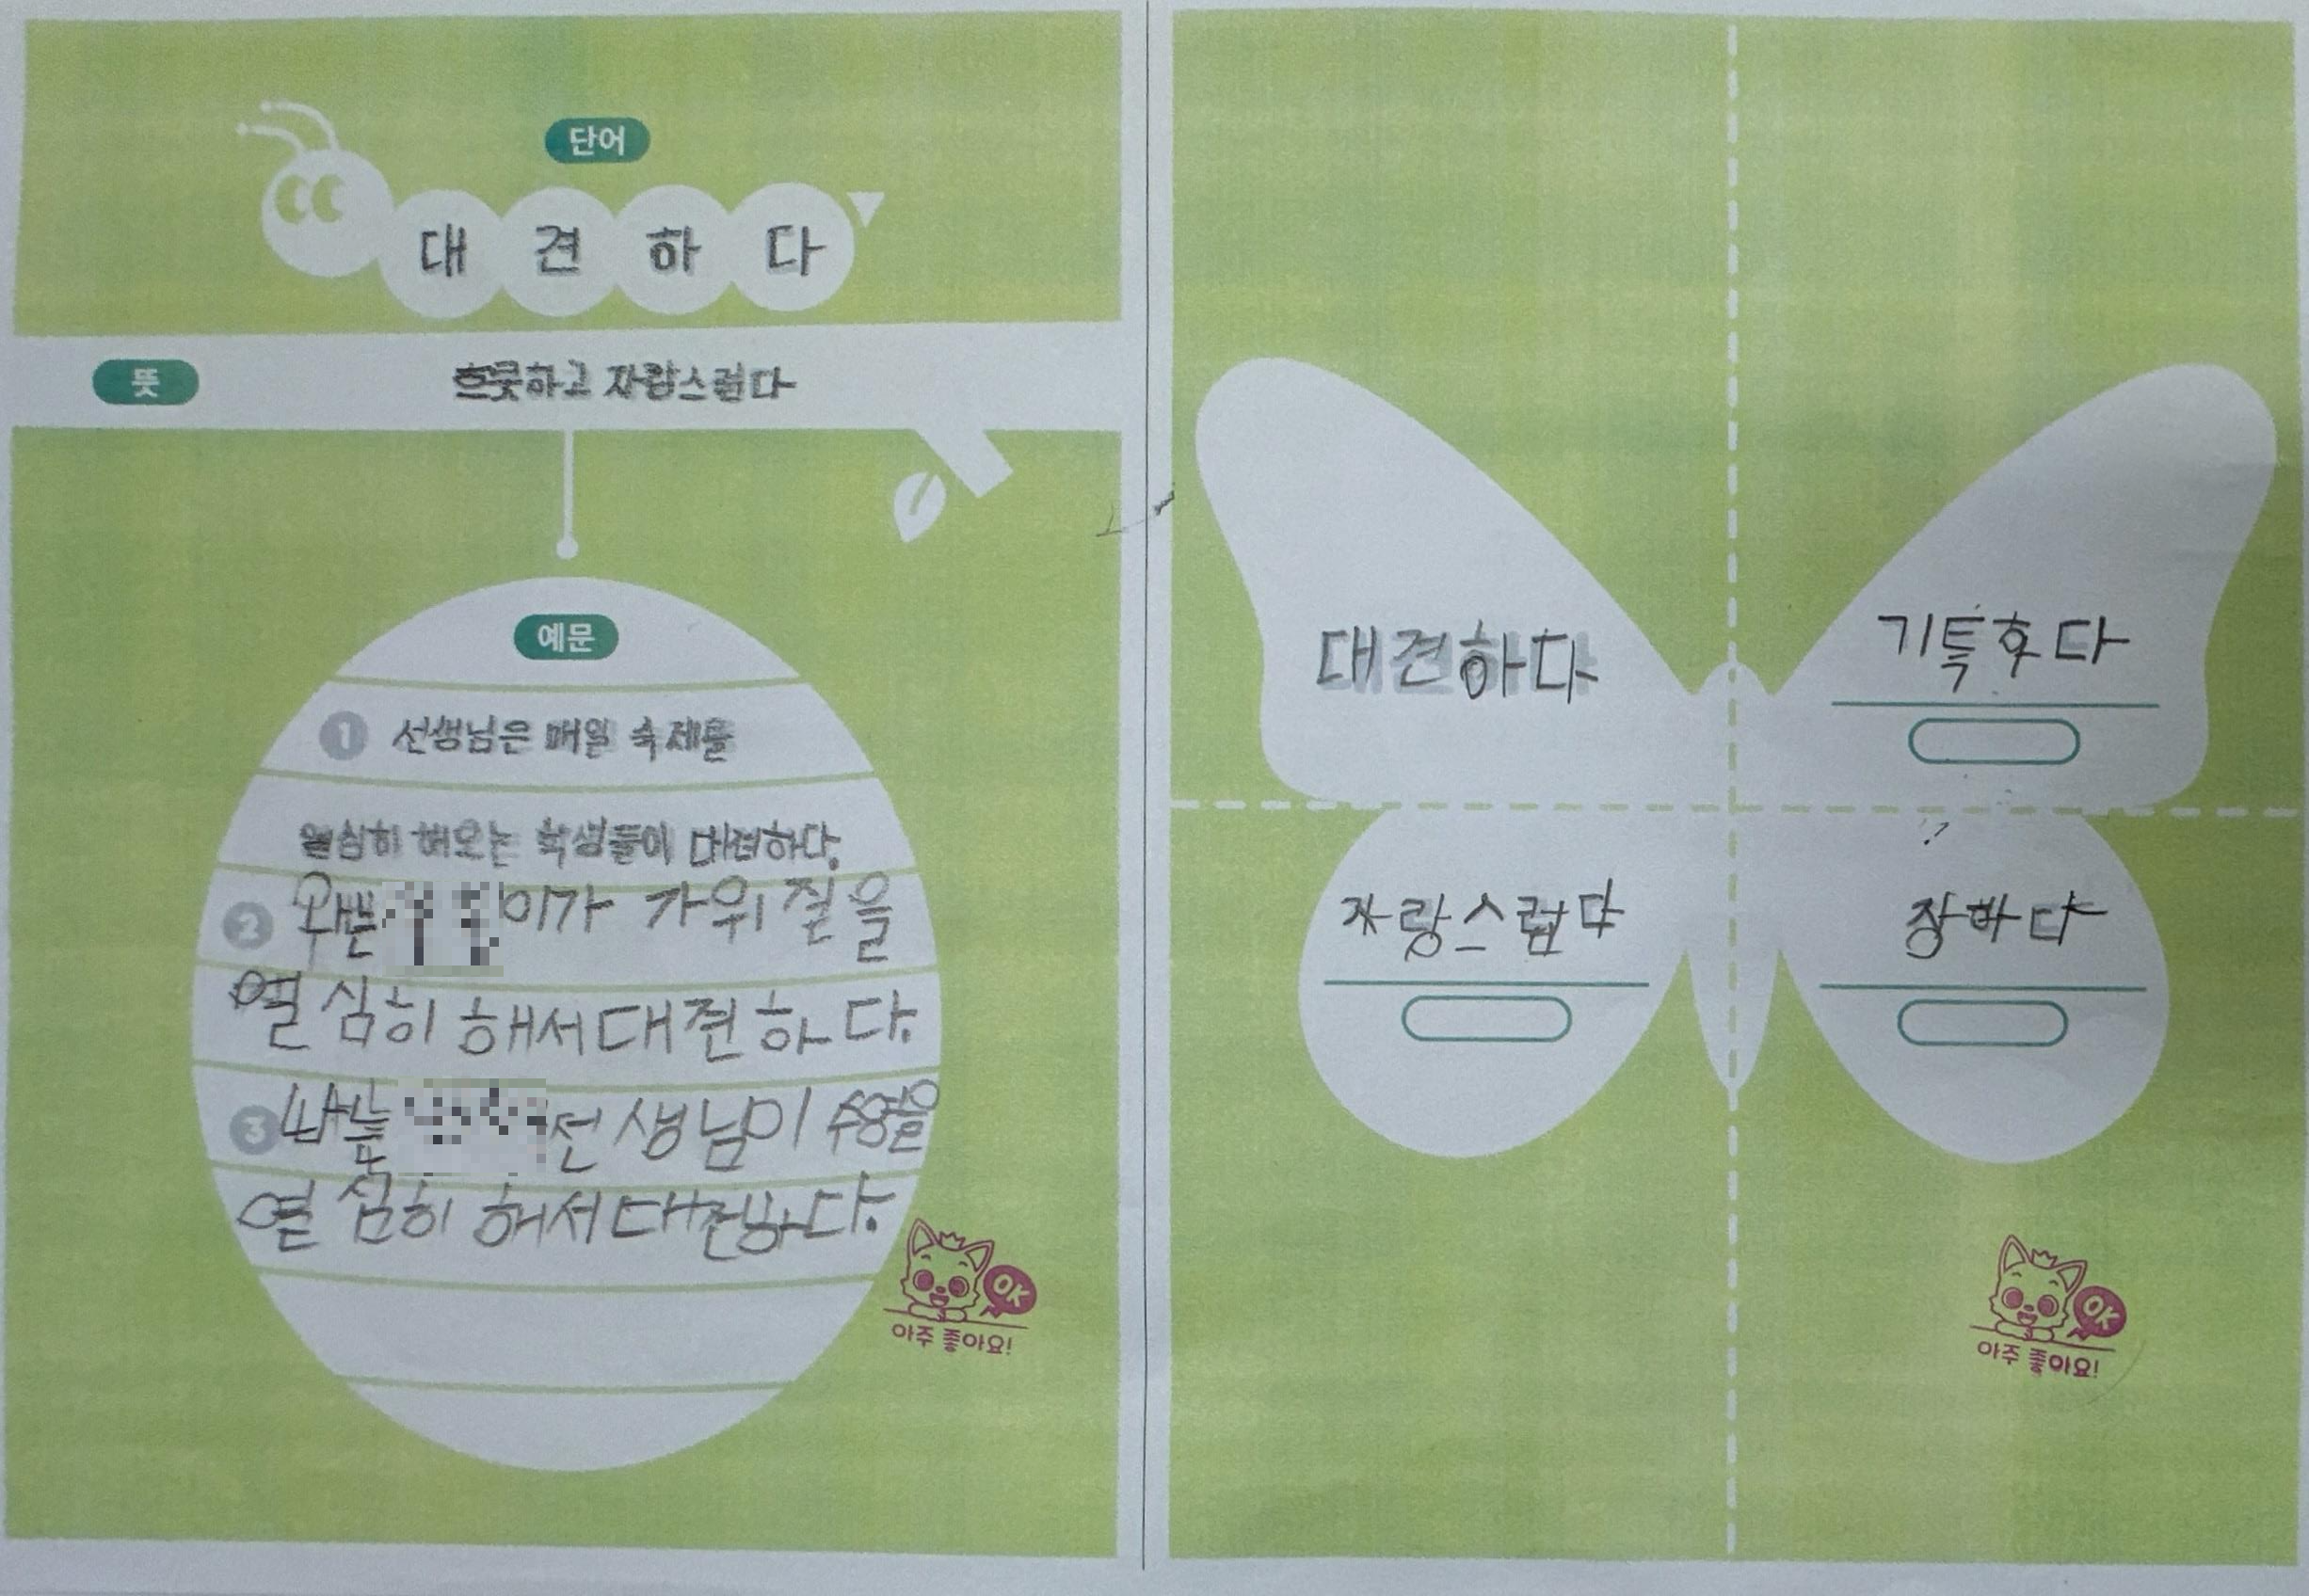 단어
대견하다
뜻
흐뭇하고 자랑스럽다
예문
1 선생님은 매일 숙제를
열심히 해오는 학생들이 대견하다.
2 이가 가위질을
열심히 해서 대견하다.
3 나는 선생님이 수영을
열심히 해서 대견하다.
OK
아주 좋아요!
대견하다
기특하다
자랑스럽다
장하다
OK
아주 좋아요!